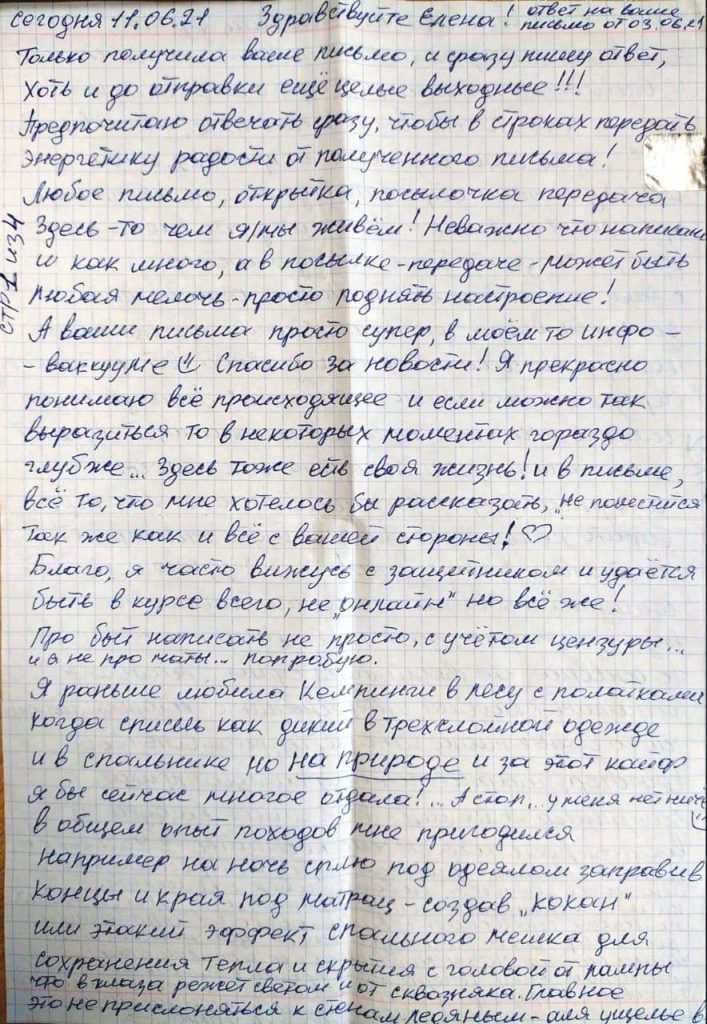 сегодня 11.06.21 Здравствуйте Елена! ответ на ваше
письмо от 03.06.21
Только получила ваше письмо, и сразу пишу ответ,
Хоть и до отправки ещё целые выходные!!!
Предпочитаю отвечать сразу, чтобы в строках передать
энергетику радости от полученного письма!
Любое письмо, открытка, посылочка передача
Здесь-то чем я/мы живём! Неважно что написано
и как много, а в посылке-передаче-может быть
любая мелочь-просто поднять настроение!
СТР 1 из 4
А ваши письма просто супер, в моём то инфо-
-вакууме Спасибо за новости! Я прекрасно
понимаю всё происходящее и если можно так
выразиться то в некоторых моментах гораздо
глубже... Здесь тоже есть своя жизнь! и в письме,
всё то, что мне хотелось бы рассказать, не поместится
Так же как и всё с вашей стороны! ♡
Благо, я часто вижусь с защитником и удаётся
быть в курсе всего, не „онлайн“ но всё же!
Про быт написать не просто, с учётом цензуры...
и я не про маты... попробую.
Я раньше любила Кемпинги в лесу с палатками
когда спишь как дикий в трехслойной одежде
и в спальнике но на природе и за этот кайф
я бы сейчас многое отдала!.. А стоп.. у меня нет ниче
в общем опыт походов мне пригодился
например на ночь сплю под одеялом заправив
концы и края под матрац-создав „кокан“
или этакий эффект спального мешка для
сохранения тепла и скрытия с головой от лампы
что в глаза режет светом и от сквозняка. Главное
это не прислоняться к стенам ледяным-аля ущелье в